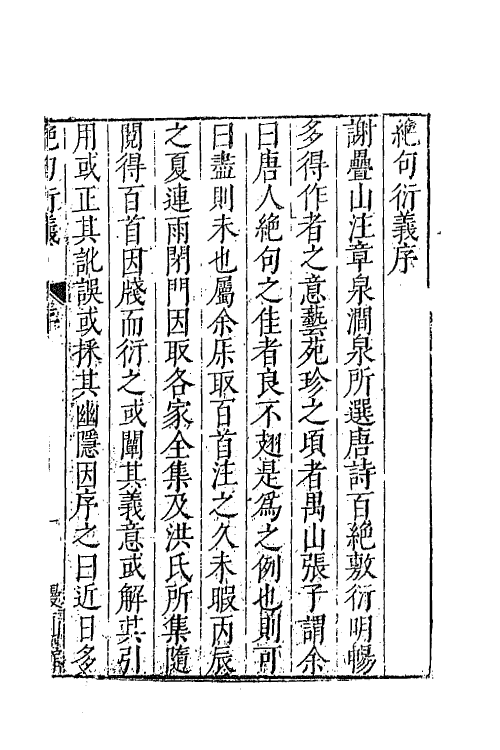 絶句衍義序
謝疊山注章泉澗泉所選唐詩百絶敷衍明暢
多得作者之意藝苑珍之頃者禺山張子謂余
曰唐人絶句之佳者良不翅是為之例也則可
曰盡則未也屬余厈取百首注之久未暇丙辰
之夏連雨閉門因取各家全集及洪氏所集隨
閲得百首因牋而衍之或闡其義意或解其引
用或正其訛誤或採其幽隱因序之曰近日多
絶句衍義